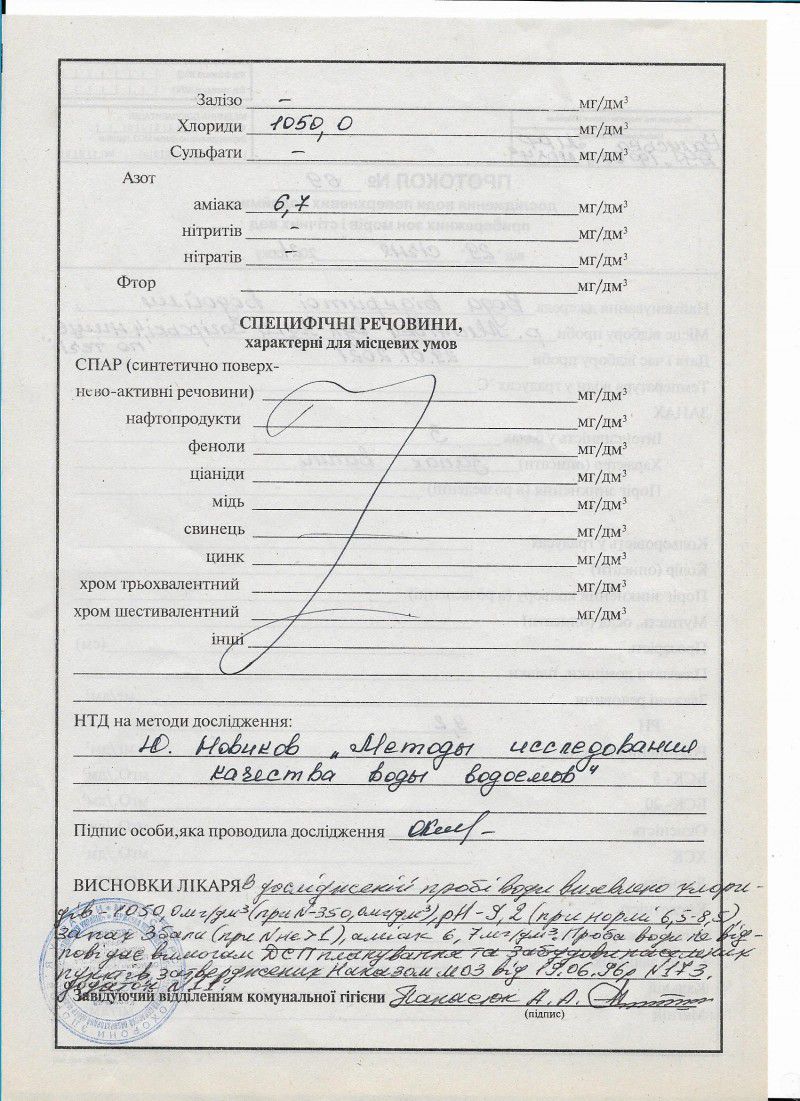 Залізо – мг/дм³
Хлориди 1050,0 мг/дм³
Сульфати – мг/дм³
Азот
аміака 6,7 мг/дм³
нітритів – мг/дм³
нітратів – мг/дм³
Фтор мг/дм³
СПЕЦИФІЧНІ РЕЧОВИНИ,
характерні для місцевих умов
СПАР (синтетично поверх-
нево-активні речовини) мг/дм³
нафтопродукти мг/дм³
феноли мг/дм³
ціаніди мг/дм³
мідь мг/дм³
свинець мг/дм³
цинк мг/дм³
хром трьохвалентний мг/дм³
хром шестивалентний мг/дм³
інші
НТД на методи дослідження:
Ю. Новиков „Методы исследования
качества воды водоемов"
Підпис особи,яка проводила дослідження
ВИСНОВКИ ЛІКАРЯ В дослідженій пробі води виявлено хлори-
дів - 1050,0мг/дм³(при N-350,0мг/дм³), рН-9,2 (при нормі 6,5-8,5)
запах 3бали (при N не>1), аміак 6,7мг/дм³. Проба води не від-
повідає вимогам ДСП планування та забудови населених
пунктів, затверджених Наказом МОЗ від 19.06.96р N173,
додаток N11.
Завідуючий відділенням комунальної гігієни Панасюк А.А.
(підпис)